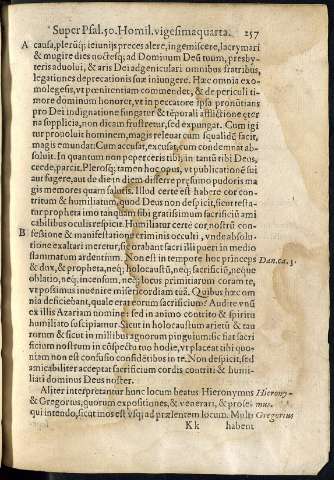 Super Psal. 50. Homil. vigesimaquarta. 257
A causa, plerūq; ieiunijs preces alere, ingemiscere, lacrymari
& mugire dies noctesq; ad Dominum Deū tuum, presby-
teris aduolui, & aris Dei adgeniculari omnibus fratribus,
legationes deprecationis suæ iniungere. Hæc omnia exo-
mologesis, vt pœnitentiam commendet, & de periculi ti-
more dominum honoret, vt in peccatore ipsa pronūtians
pro Dei indignatione fungatur & tēporali afflictione eter
na supplicia, non dicam frustretur, sed expungat. Cum igi
tur prouoluit hominem, magis releuat cum squalidū facit,
magis emundat: Cum accusat, excusat, cum condemnat ab-
soluit. In quantum non peperceris tibi, in tantū tibi Deus,
crede, parcit. Plerosq; tamen hoc opus, vt publicationē sui
aut fugere, aut de die in diem differre præsumo pudoris ma
gis memores quam salutis. Illud certe est habere cor con-
tritum & humiliatum, quod Deus non despicit, sicut testa-
tur propheta imo tanquam sibi gratissimum sacrificiū ami
cabilibus oculis respicit. Humiliatur certe cor nostrū con-
B fessione & manifestatione criminis occulti, vnde absolu-
tione exaltari meretur, sic orabant sacri illi pueri in medio
flammarum ardentium. Non est in tempore hoc princeps Dan. ca. 3.
& dux, & propheta, neq; holocaustū, neq; sacrificiū, neque
oblatio, neq; incensum, neq; locus primitiarum coram te,
vt possimus inuenire misericordiam tuā. Quibus hæc om
nia deficiebant, quale erat eorum sacrificium? Audite vnū
ex illis Azariam nomine: sed in animo contrito & spiritu
humiliato suscipiamur. Sicut in holocaustum arietū & tau
rorum & sicut in millibus agnorum pinguium: sic fiat sacri
ficium nostrum in cōspectu tuo hodie, vt placeat tibi quo-
niam non est confusio confidētibos in te. Non despicit, sed
amicabiliter acceptat sacrificium cordis contriti & humi-
liati dominus Deus noster.
Aliter interpretantur hunc locum beatus Hieronymus Hierony-
& Gregorius, quorum expositiones, & venerari, & prose- mus.
qui intendo, sicut mos est vsq; ad præsentem locum. Multi Gregorius
Kk habent